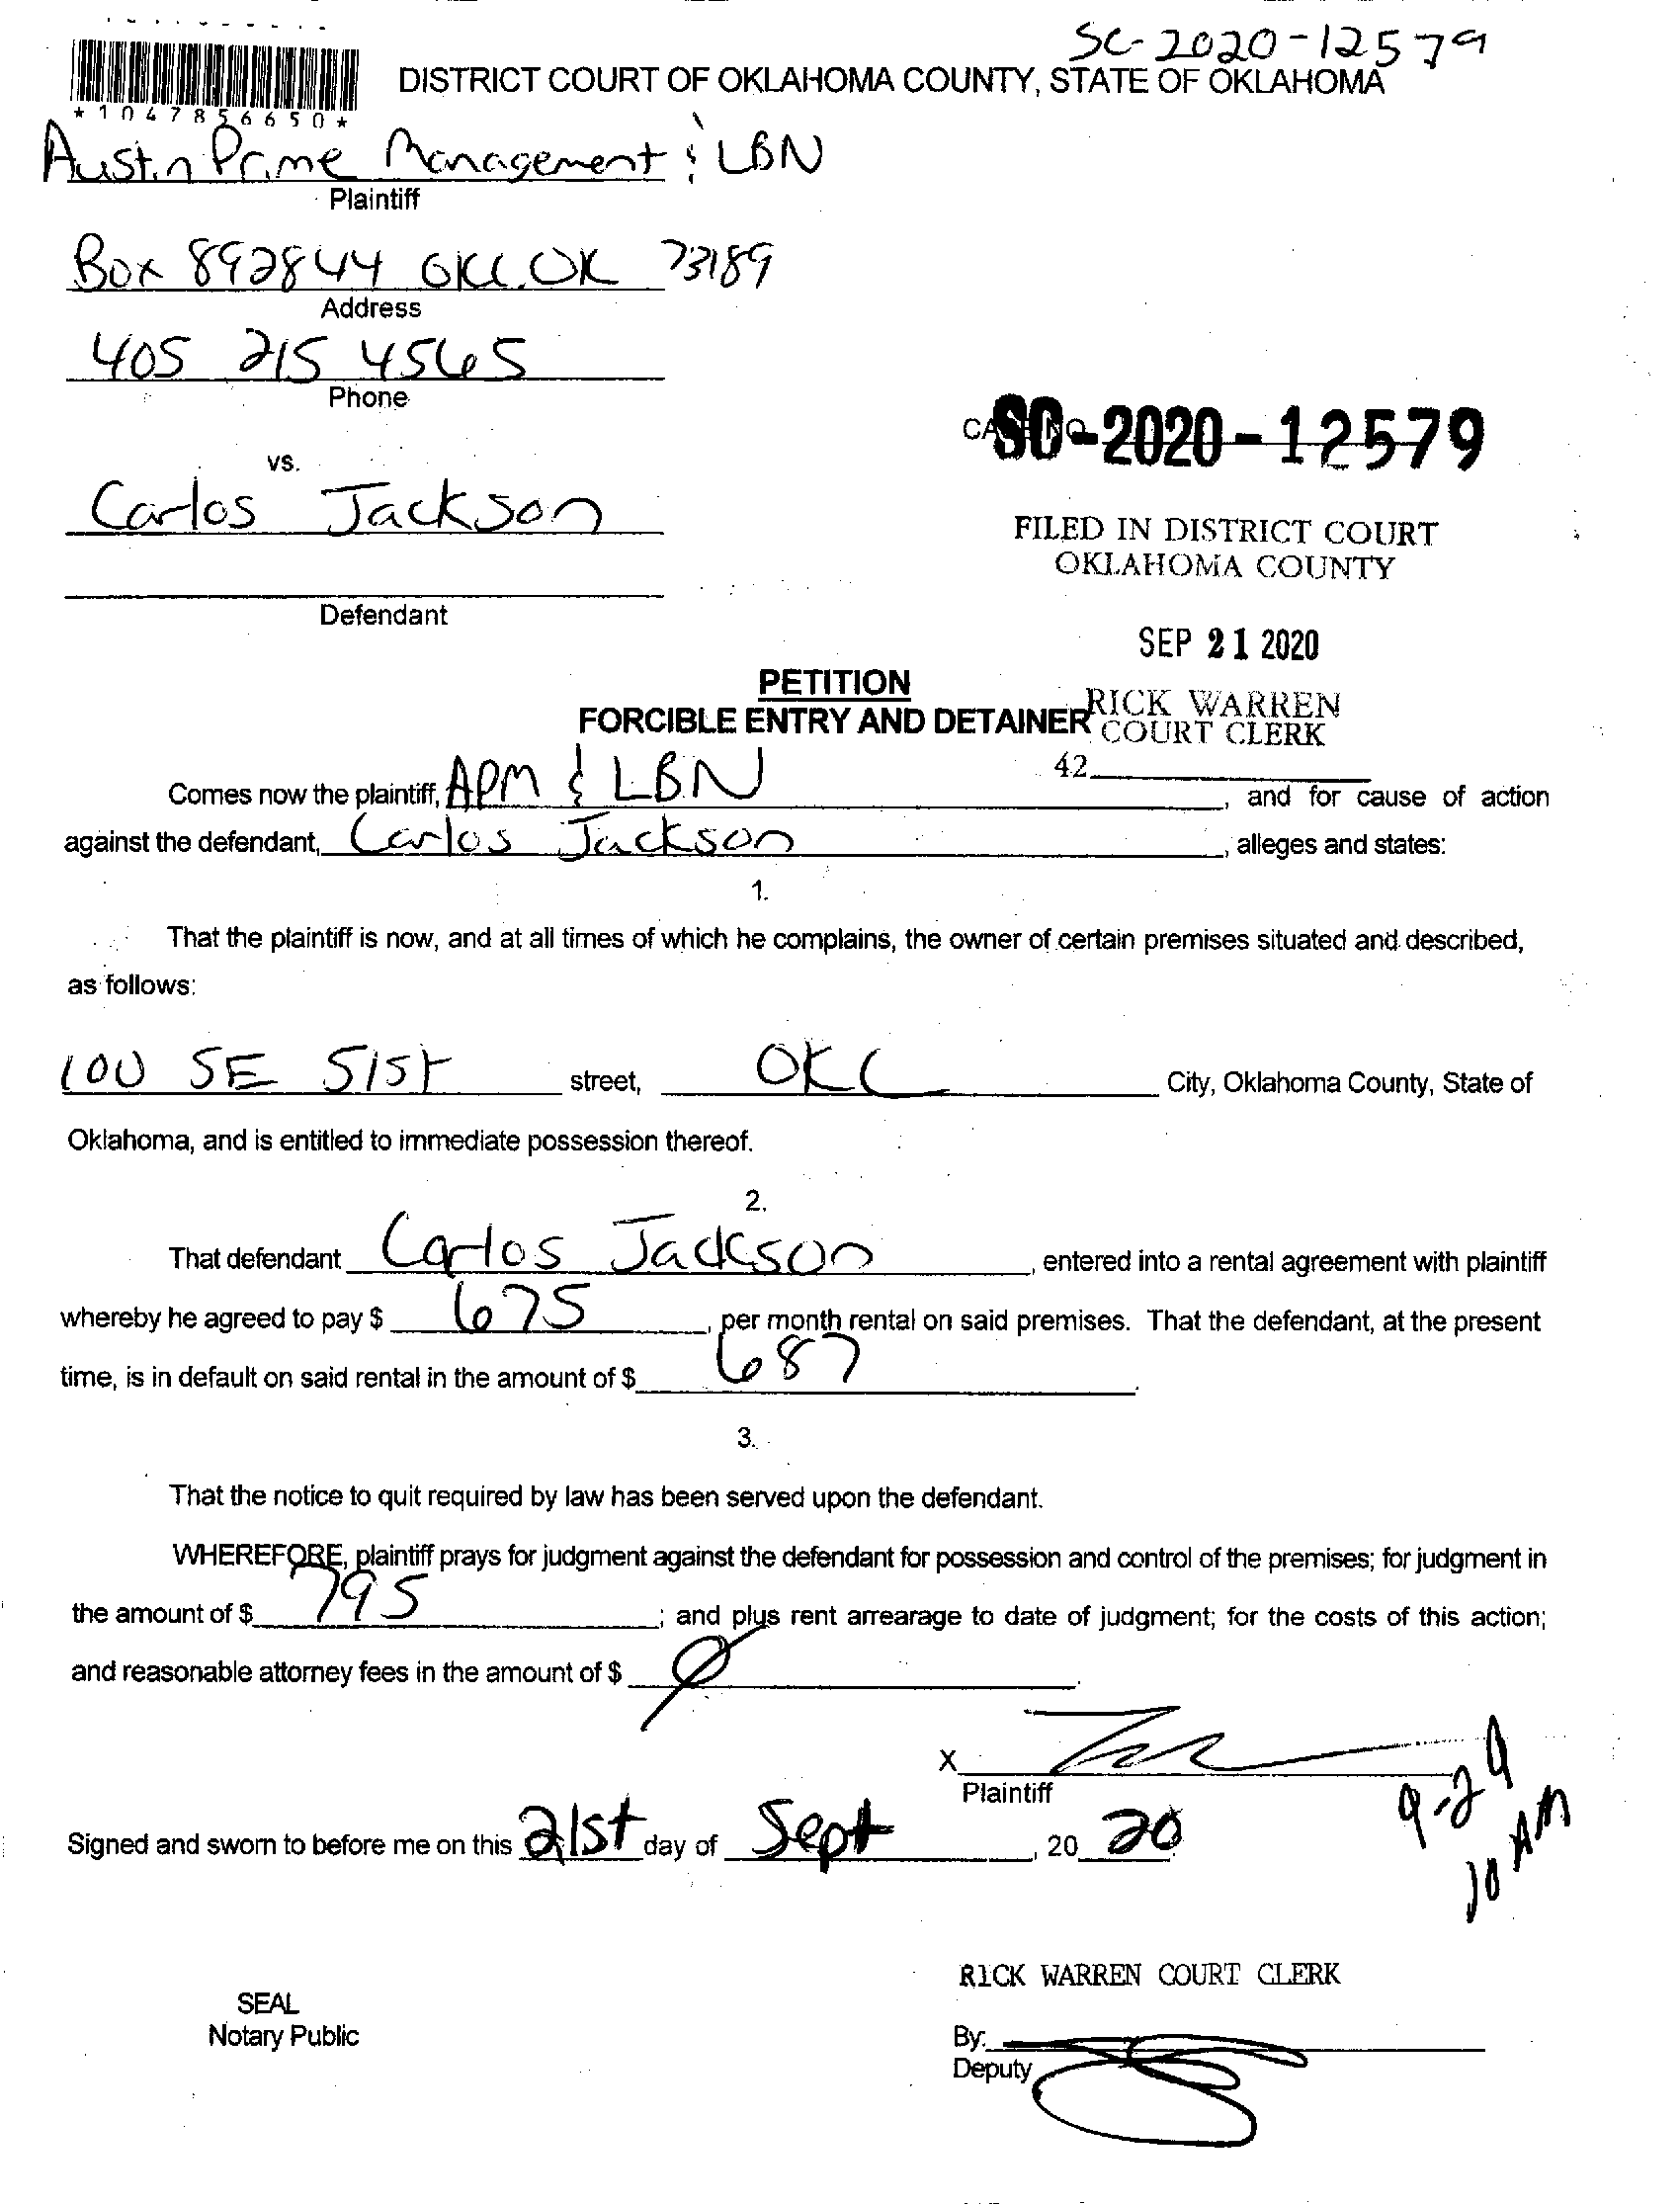 SC-2020-12579
DISTRICT COURT OF OKLAHOMA COUNTY, STATE OF OKLAHOMA
*1047856650*
Austin Prime Management & LBN
Plaintiff
Box 892844 OKC.OK 73189
Address
405 215 4565
Phone
SC-2020-12579
vs.
Carlos Jackson
FILED IN DISTRICT COURT
OKLAHOMA COUNTY
Defendant
SEP 21 2020
PETITION
FORCIBLE ENTRY AND DETAINER
RICK WARREN
COURT CLERK
42
Comes now the plaintiff, APM & LBN, and for cause of action
against the defendant, Carlos Jackson, alleges and states:
1.
That the plaintiff is now, and at all times of which he complains, the owner of certain premises situated and described,
as follows:
100 SE 51st street, OKC City, Oklahoma County, State of
Oklahoma, and is entitled to immediate possession thereof.
2.
That defendant Carlos Jackson, entered into a rental agreement with plaintiff
whereby he agreed to pay $ 675, per month rental on said premises. That the defendant, at the present
time, is in default on said rental in the amount of $ 687.
3.
That the notice to quit required by law has been served upon the defendant.
WHEREFORE, plaintiff prays for judgment against the defendant for possession and control of the premises; for judgment in
the amount of $ 795; and plus rent arrearage to date of judgment; for the costs of this action;
and reasonable attorney fees in the amount of $ 0.
X
Plaintiff
9-29
10 AM
Signed and sworn to before me on this 21st day of Sept, 20 20
RICK WARREN COURT CLERK
SEAL
Notary Public
By:
Deputy